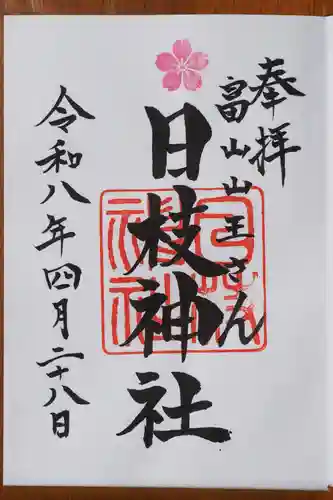 奉拝
富山山王さん
日枝神社
令和八年四月二十八日
日枝神社